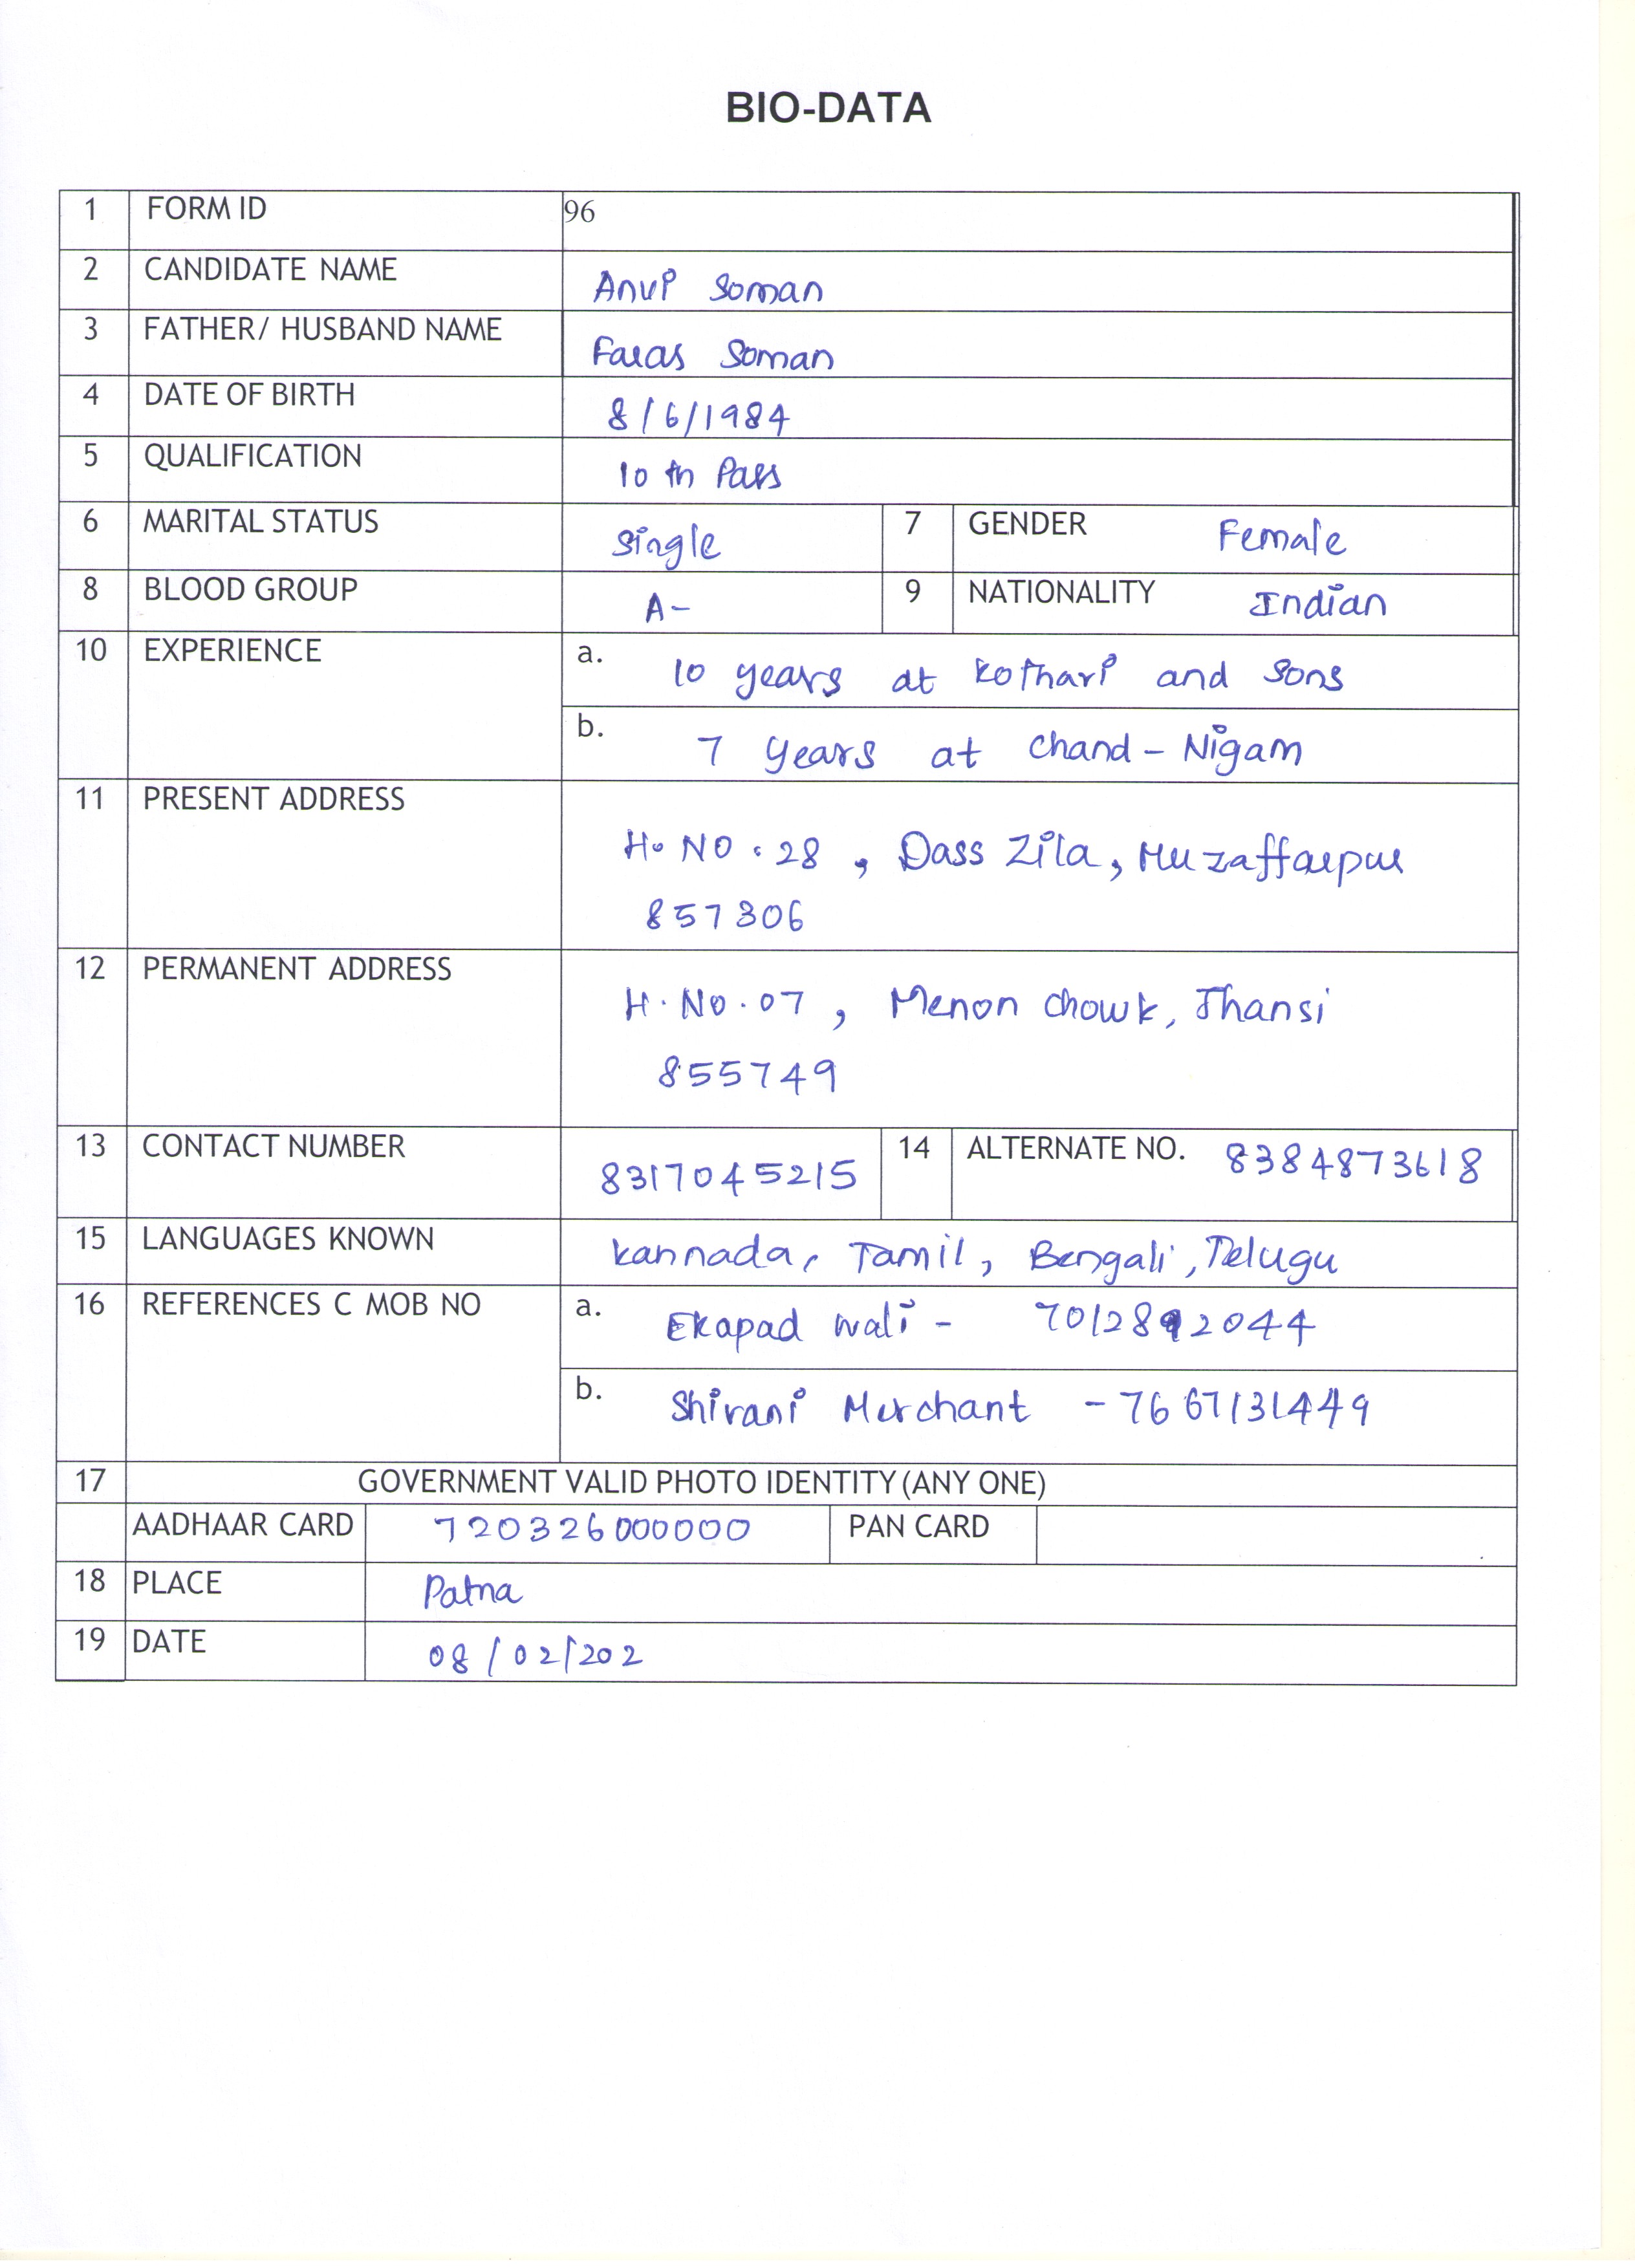 BIO-DATA
1 FORM ID 96
2 CANDIDATE NAME Anup Soman
3 FATHER/ HUSBAND NAME Faras Soman
4 DATE OF BIRTH 8/6/1984
5 QUALIFICATION 10 th Pass
6 MARITAL STATUS single 7 GENDER Female
8 BLOOD GROUP A- 9 NATIONALITY Indian
10 EXPERIENCE a. 10 years at Kothari and Sons
b. 7 years at Chand-Nigam
11 PRESENT ADDRESS
H. NO. 28, Dass Zila, Muzaffarpur
857306
12 PERMANENT ADDRESS
H. No. 07, Menon Chowk, Jhansi
855749
13 CONTACT NUMBER 8317045215 14 ALTERNATE NO. 8384873618
15 LANGUAGES KNOWN Kannada, Tamil, Bengali, Telugu
16 REFERENCES C MOB NO a. Ekapad Wali - 7012892044
b. Shivani Merchant - 7667131449
17 GOVERNMENT VALID PHOTO IDENTITY (ANY ONE)
AADHAAR CARD 720326000000 PAN CARD
18 PLACE Patna
19 DATE 08/02/202